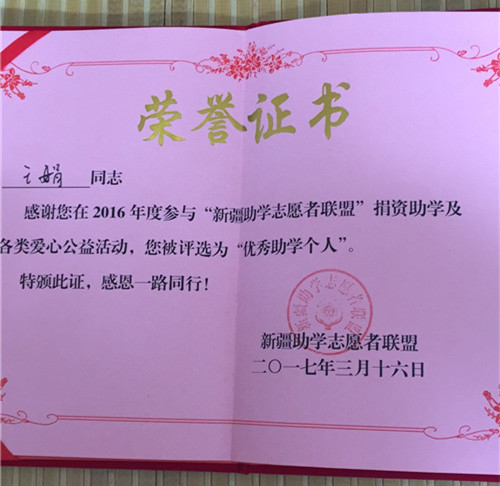 荣誉证书
娟 同志
感谢您在2016年度参与“新疆助学志愿者联盟”捐资助学及
各类爱心公益活动，您被评选为“优秀助学个人”。
特颁此证，感恩一路同行！
新疆助学志愿者联盟
新疆助学志愿者联盟
二〇一七年三月十六日